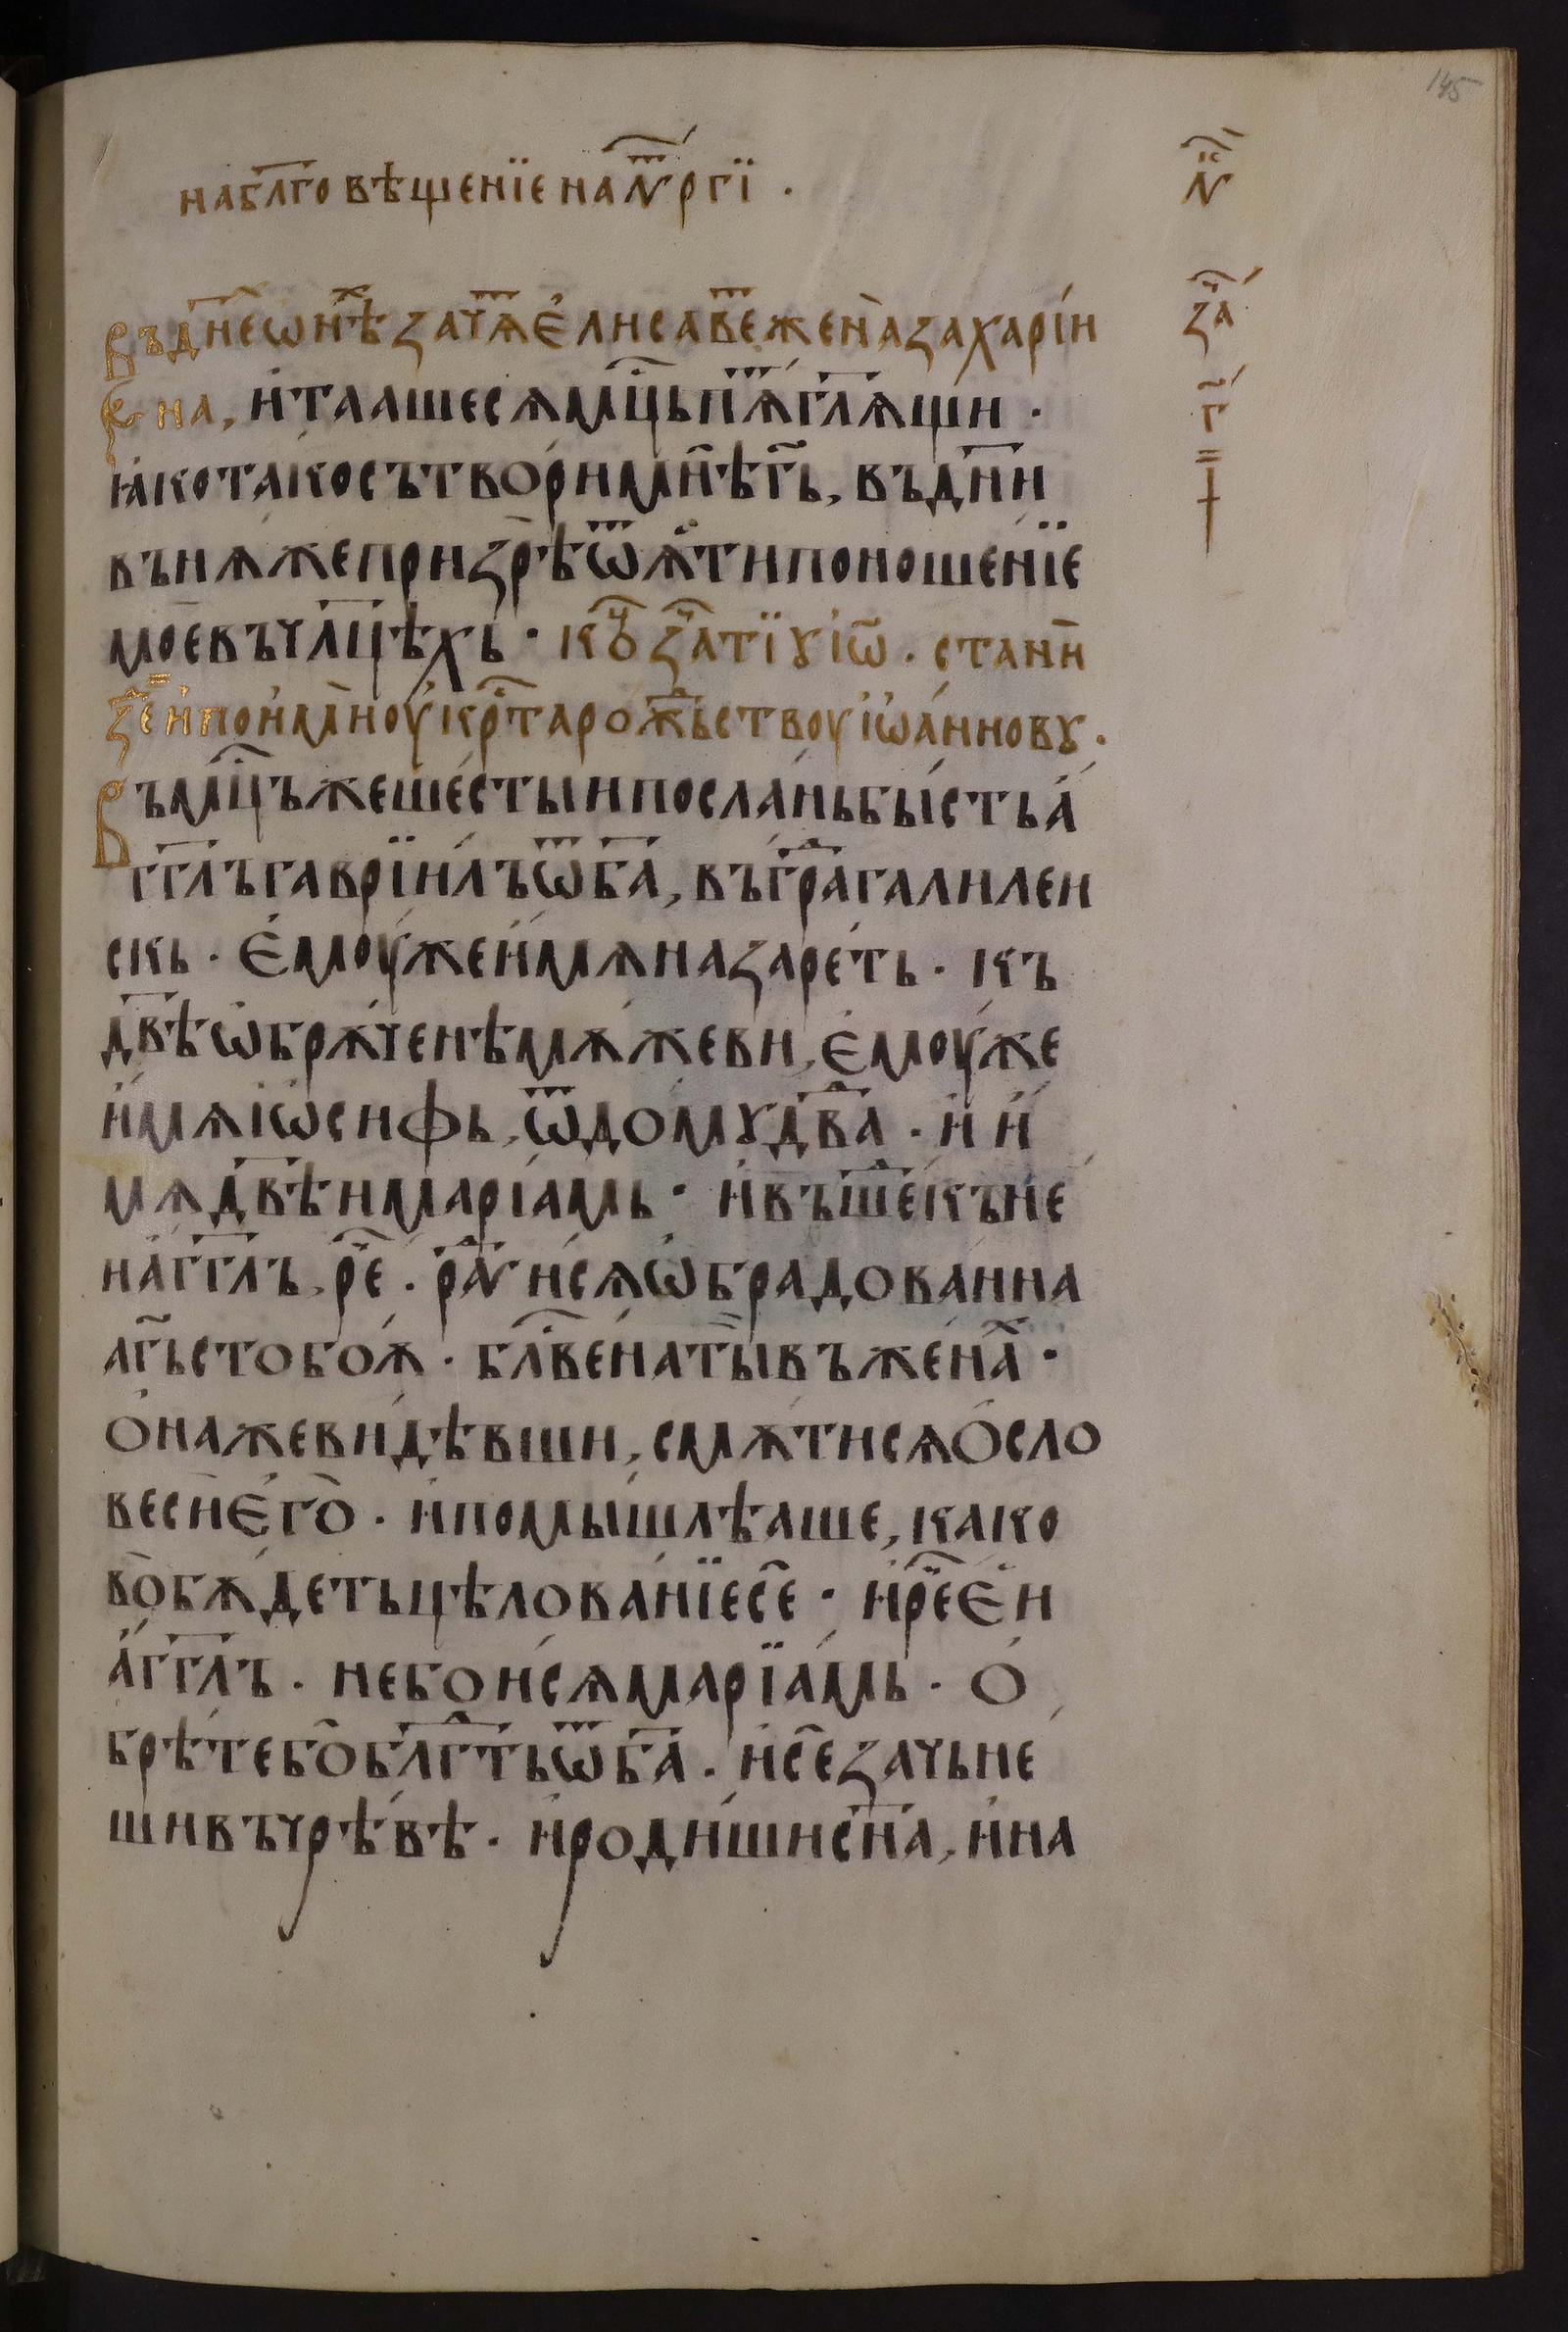 145
на бл҃говѣщенїе на лⷮрⷢ҇ї .
л҃
Въ дн҃е ѡнѣⷯ зачѧⷮ єлисавеⷮ жена захарїи
заⷱ҇
ена, и таꙗше сѧ мцⷭ҇ь пѧⷮ гл҃ѧщи ·
г҃
ꙗко тако сътвори мнѣ г҃ь, въ дн҃и
въ нѧже призрѣ ѿѧти поношенїе
мое въ чл҃цѣхь · коⷰ҇ заⷱ҇тїꙋ їѡ҃ . стани
зⷣе и поими оу крⷭ҇та рожⷣьствоу їѡаннову .
Въ мцⷭ҇ъ же шестыи послань бысть а
гг҃лъ гаврїилъ ѿ б҃а, въ граⷣ галилеи
скь · ємоуже имѧ назареть · къ
дв҃ѣ ѡбрѫченѣ мѫжеви, ємоуже
имѧ їѡсифь, ѿ домꙋ дв҃ⷣа · и и
мѧ дв҃ѣи марїамь · и въшеⷣ къ не
и агг҃лъ, рⷱ҇е . раⷣуи сѧ ѡбрадованна
а г҃ь с тобоѫ · блⷭ҇вена ты въ женаⷯ ·
она же видѣвши, смѫти сѧ о сло
веси єго · и помышлѣаше, како
во бѫдеть цѣлованїе се · и рⷱ҇е єи
агг҃лъ · не бои сѧ марїамь · о
брѣте бо блⷣгⷣть ѿ б҃а . и се зачьне
ши въ чрѣвѣ · и родиши сн҃а, и на